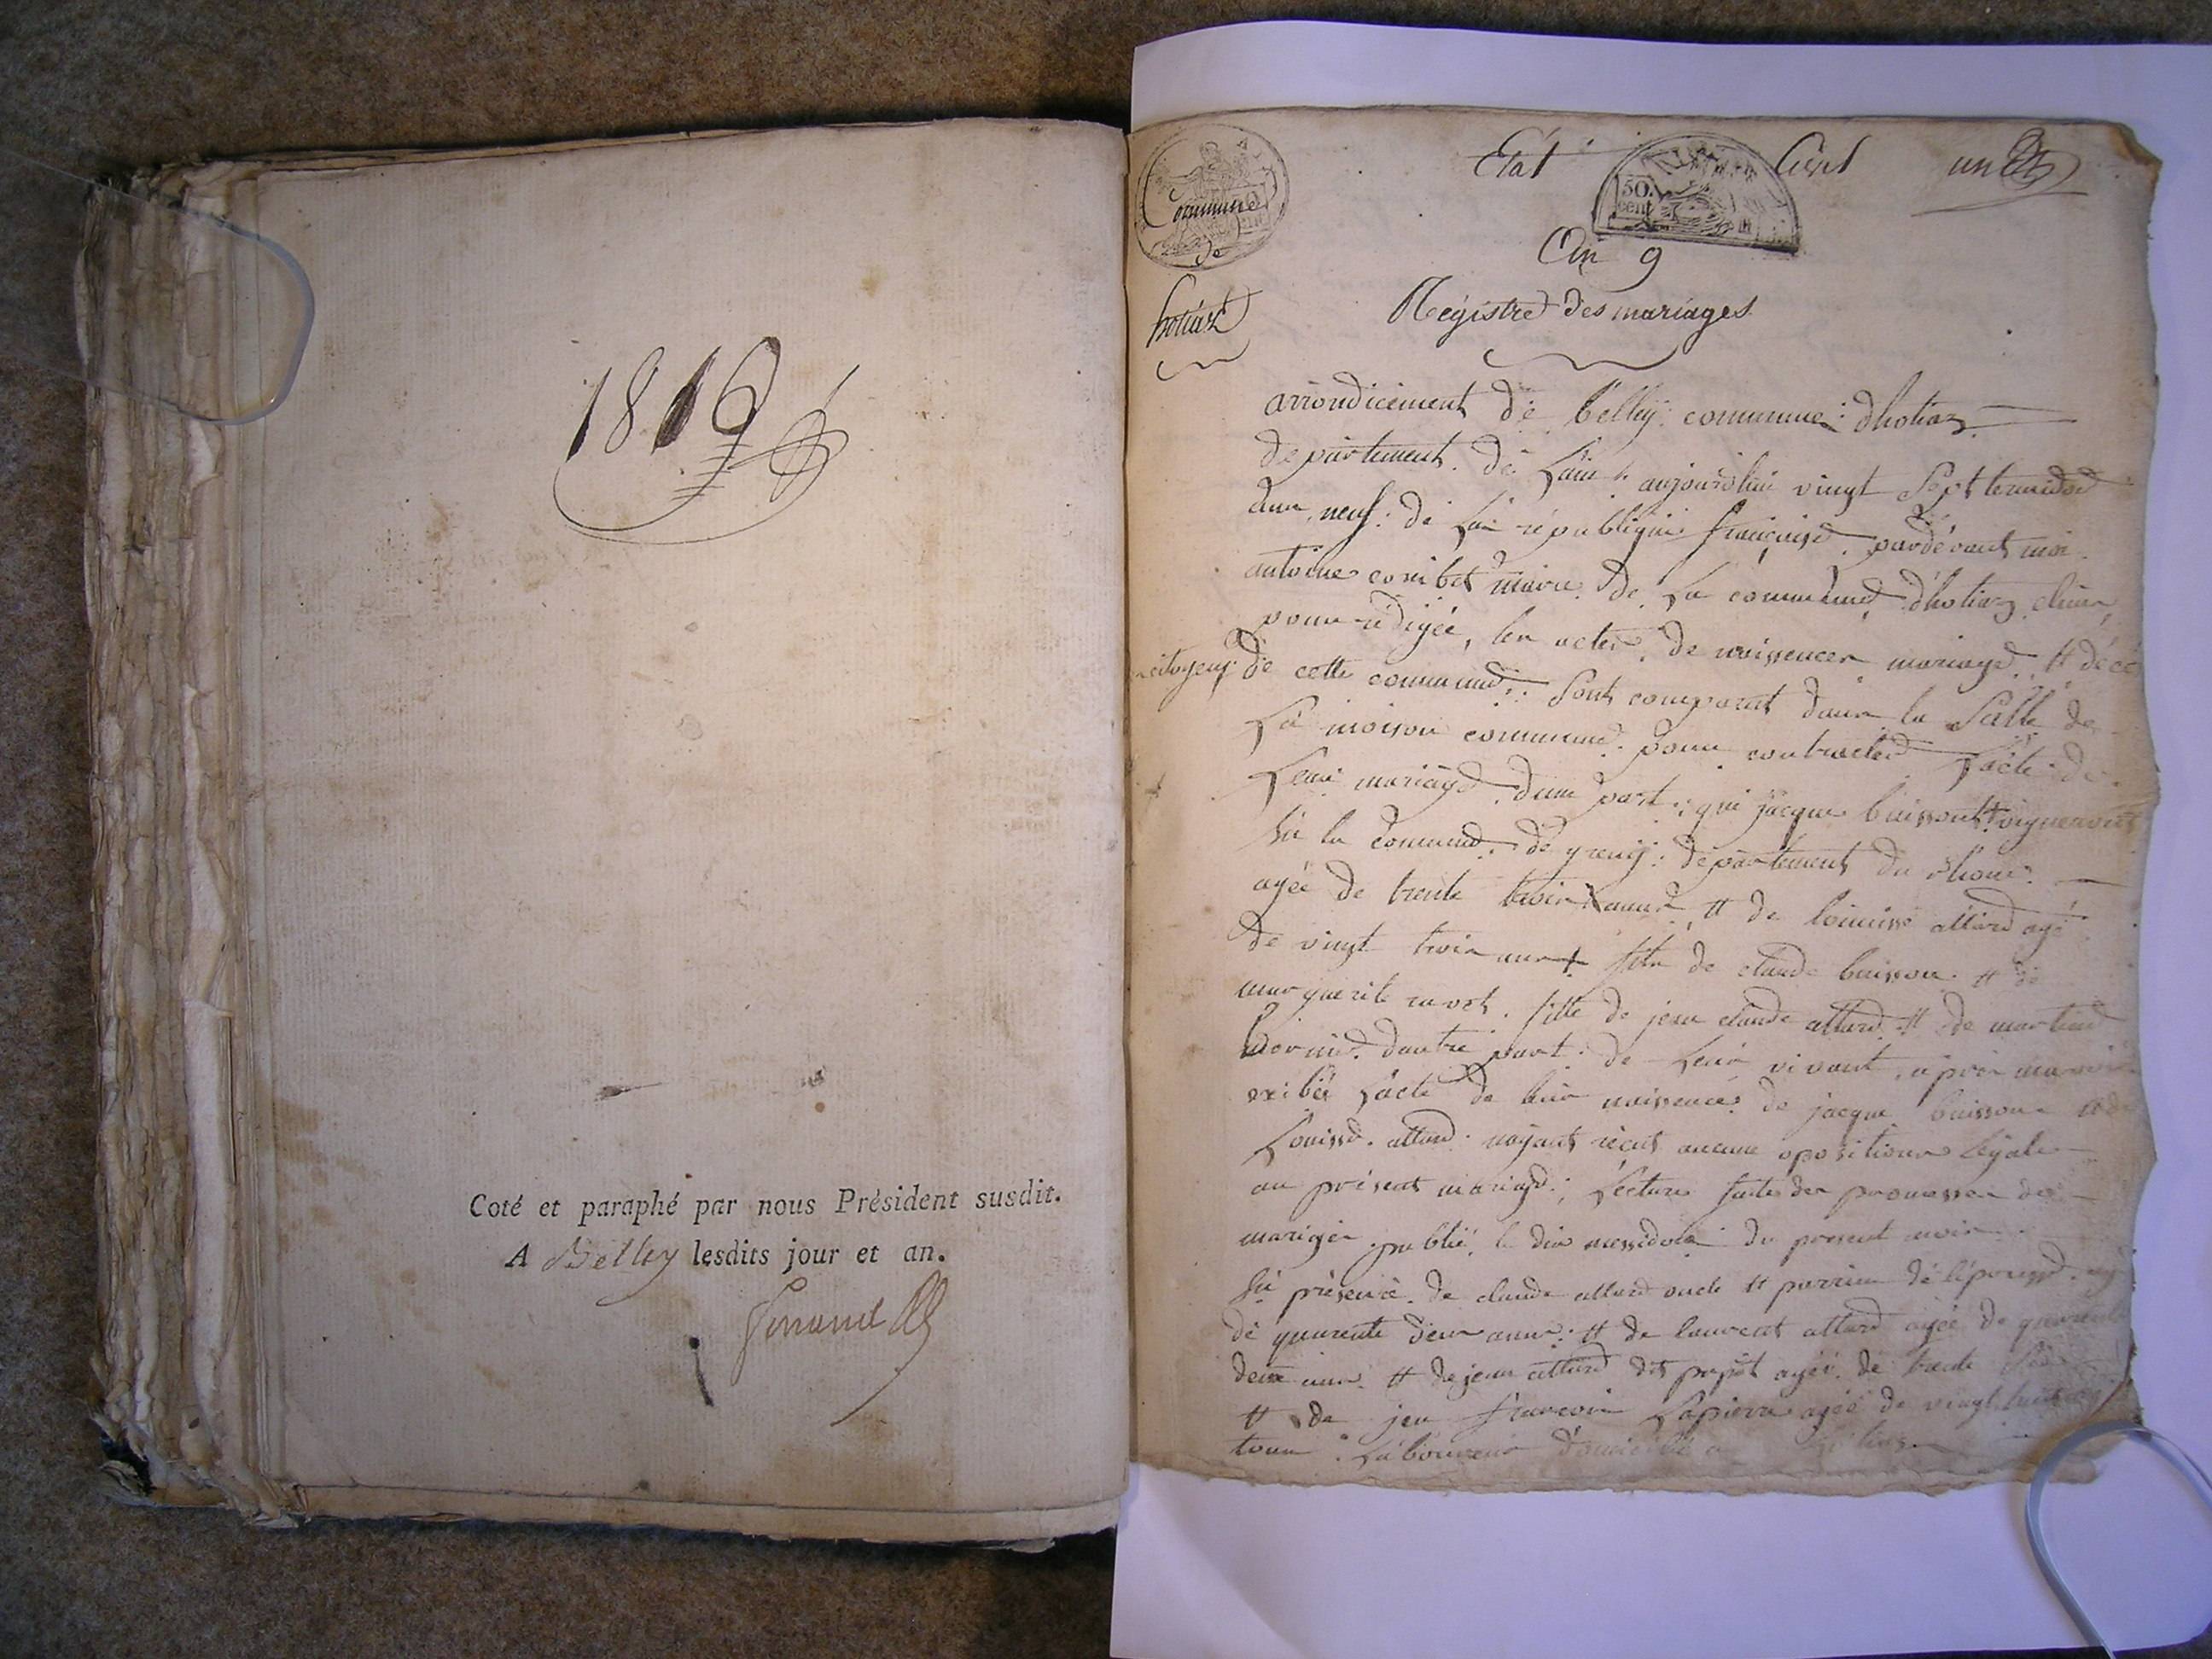 1819
Coté et paraphé par nous Président susdit.
A Belley lesdits jour et an.
Commune
de
hotiaz
50
cent
Etat Civil un
An 9
Régistre des mariages
arrondicement de belley: commune: dhotiaz
departement de Lain aujourdhui vingt sept termidor
dun neuf: de La république française pardevant moi
antoine comibet maire de La commune dhotiaz
pour rédigée, les actes de naissences mariage et décé
citoyens de cette commune: sont comparut dans la salle de
La maison commune pour contracter Lacte de
Leur mariage dune part: jacque buissont vigneront
de la commune de departement du rhone
agée de trente trois anné, et de louisse allard agé
de vingt trois ans fils de claude buisson et de
marguerite ravet. fille de jean claude allard et de
dautre part de Leur vivant, aprés
exibés Lacte de leur naissence de jacque buisson et de
Louisse allard nayant recut aucune opositions légale
au présent mariage: Lecture faite des promesses de
mariage publié, le dix messidore du present mois
présence de claude allard oncle et parrien de lépousse
de quarente deux anné: et de laurent allard agée de quarente
deux ans et de jean allard dit agée de trente
et de jean francois Lapierre agée de vingt huit
tous Laboureur